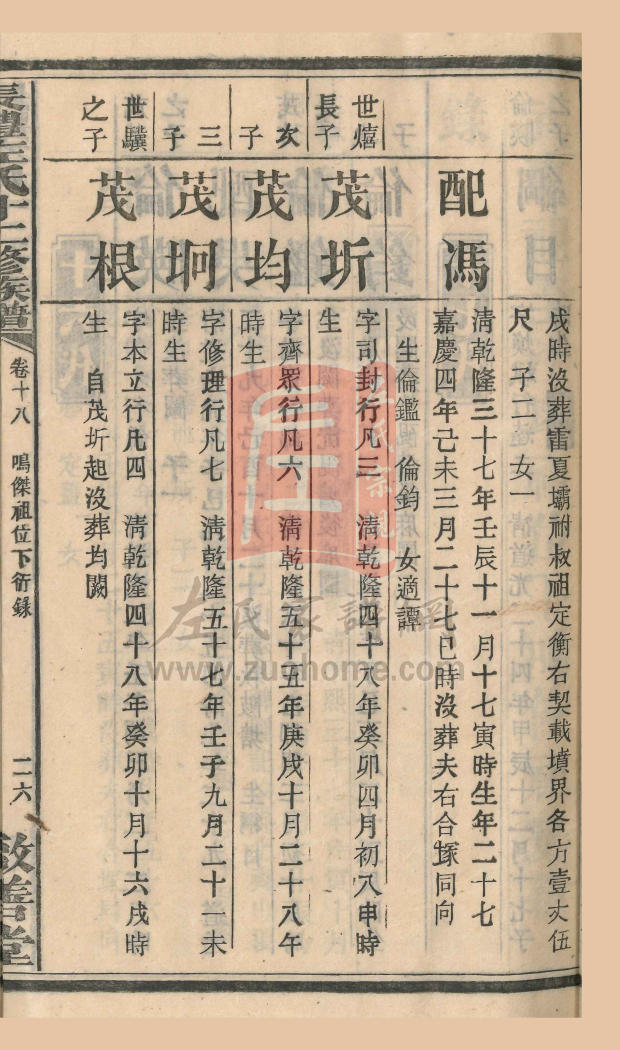 戌時沒葬雷夏壩祔叔祖定衡右契載墳界各方壹丈伍
尺　子二　女一
配馮
清乾隆三十七年壬辰十一月十七寅時生年二十七
嘉慶四年己未三月二十七巳時沒葬夫右合塚同向
生倫鑑　倫鈞　女適譚
世熺長子
茂圻
字司封行凡三　清乾隆四十八年癸卯四月初八申時
生
次子
茂均
字齊眾行凡六　清乾隆五十五年庚戌十月二十八午
時生
三子
茂坰
字修理行凡七　清乾隆五十七年壬子九月二十一未
時生
世驥之子
茂根
字本立行凡四　清乾隆四十八年癸卯十月十六戌時
生　自茂圻起沒葬均闕
長澧左氏十二修族譜
卷十八　鳴傑祖位下衍錄
二六
敦善堂
左氏家譜網
www.zuohome.com